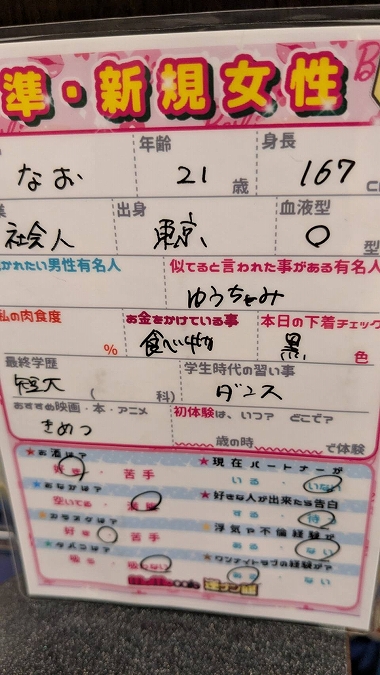 準・新規女性
年齢 身長
なお 21歳 167
出身 血液型
社会人 東京 O型
かれたい男性有名人 似てると言われた事がある有名人
ゆうちゃみ
私の肉食度 お金をかけている事 本日の下着チェック
% 食べ物 黒色
最終学歴 学生時代の習い事
短大 ( 科) ダンス
おすすめ映画・本・アニメ 初体験は、いつ? どこで?
きめつ 歳の時 で体験
★お酒は? ★現在パートナーが
好き ・ 苦手 いる ・ いない
★おなかは? ★好きな人が出来たら告白
空いてる ・ 満腹 する ・ 待つ
★カラオケは? ★浮気や不倫経験が
好き ・ 苦手 ある ・ ない
★タバコは? ★ワンナイトラブの経験が?
吸う ・ 吸わない ある ・ ない